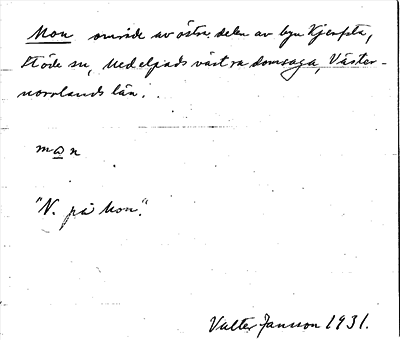 Mon område av östra delen av byn Kjersta,
Stöde sn, Medelpads västra domsaga, Väster-
norrlands län.
man
"N. på Mon."
Valter Jansson 1931.